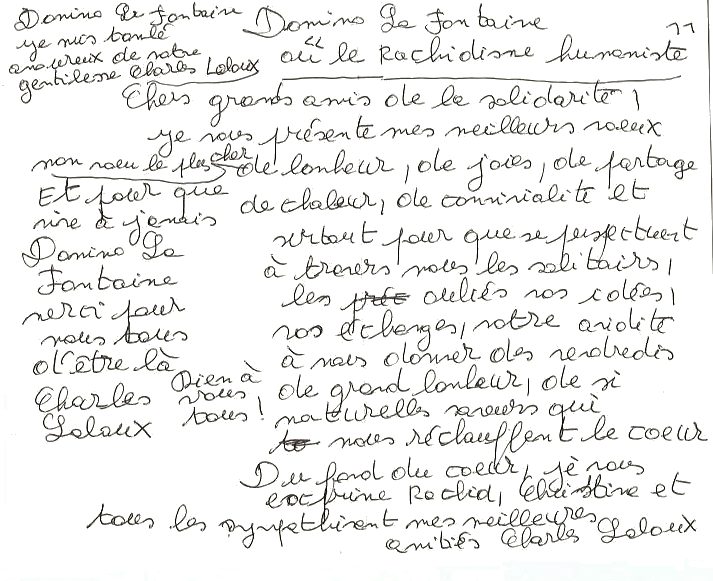 Domino La Fontaine
je suis tombé
amoureux de votre
gentillesse Charles Laloux
Domino La Fontaine
où "le Rachidisme humaniste"
Chers grands amis de la solidarité,
je vous présente mes meilleurs voeux
mon voeu le plus cher
de bonheur, de joies, de partage
de chaleur, de convivialité et
surtout pour que se perpectuent
à travers nous les solitairs,
les oubliés vos idées,
vos échanges, votre avidité
à nous donner des vendredis
de grand bonheur, de si
naturelles saveurs qui
nous réchauffent le coeur
Et pour que
vive à jamais
Domino La
Fontaine
merci pour
vous tous
d'être là
Charles
Laloux
Bien à
vous
tous!
Du fond du coeur, je vous
exprime Rachid, Christine et
tous les sympathisent mes meilleures
amitiés Charles Laloux